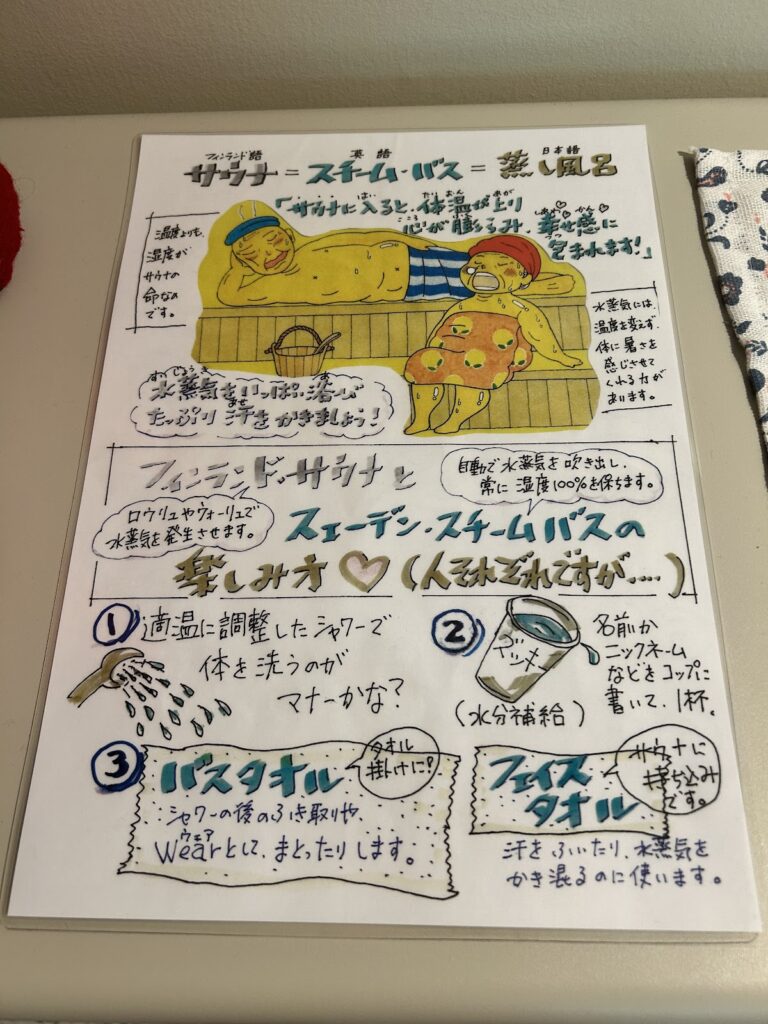 フィンランド語 英語 日本語
サウナ = スチーム・バス = 蒸し風呂
「サウナに入ると、体温が上り
心が膨るみ、幸せ感に
包まれます!」
温度よりも、
湿度が
サウナの
命なの
です。
水蒸気には、
温度を変えず、
体に暑さを
感じさせて
くれる力が
あります。
水蒸気をいっぱい浴び
たっぷり汗をかきましょう!
フィンランド・サウナと
自動で水蒸気を吹き出し、
常に湿度100%を保ちます。
ロウリュやヴォーリュで
水蒸気を発生させます。
スェーデン・スチームバスの
楽しみ方♡(人それぞれですが....)
① 適温に調整したシャワーで
体を洗うのが
マナーかな?
②
名前か
ニックネーム
などをコップに
書いて、1杯。
(水分補給)
③ バスタオル
タオル
掛けに!
シャワーの後のふき取りや、
ウェア
Wearとして、まとったりします。
フェイス
タオル
サウナに
持ち込み
です。
汗をふいたり、水蒸気を
かき混るのに使います。